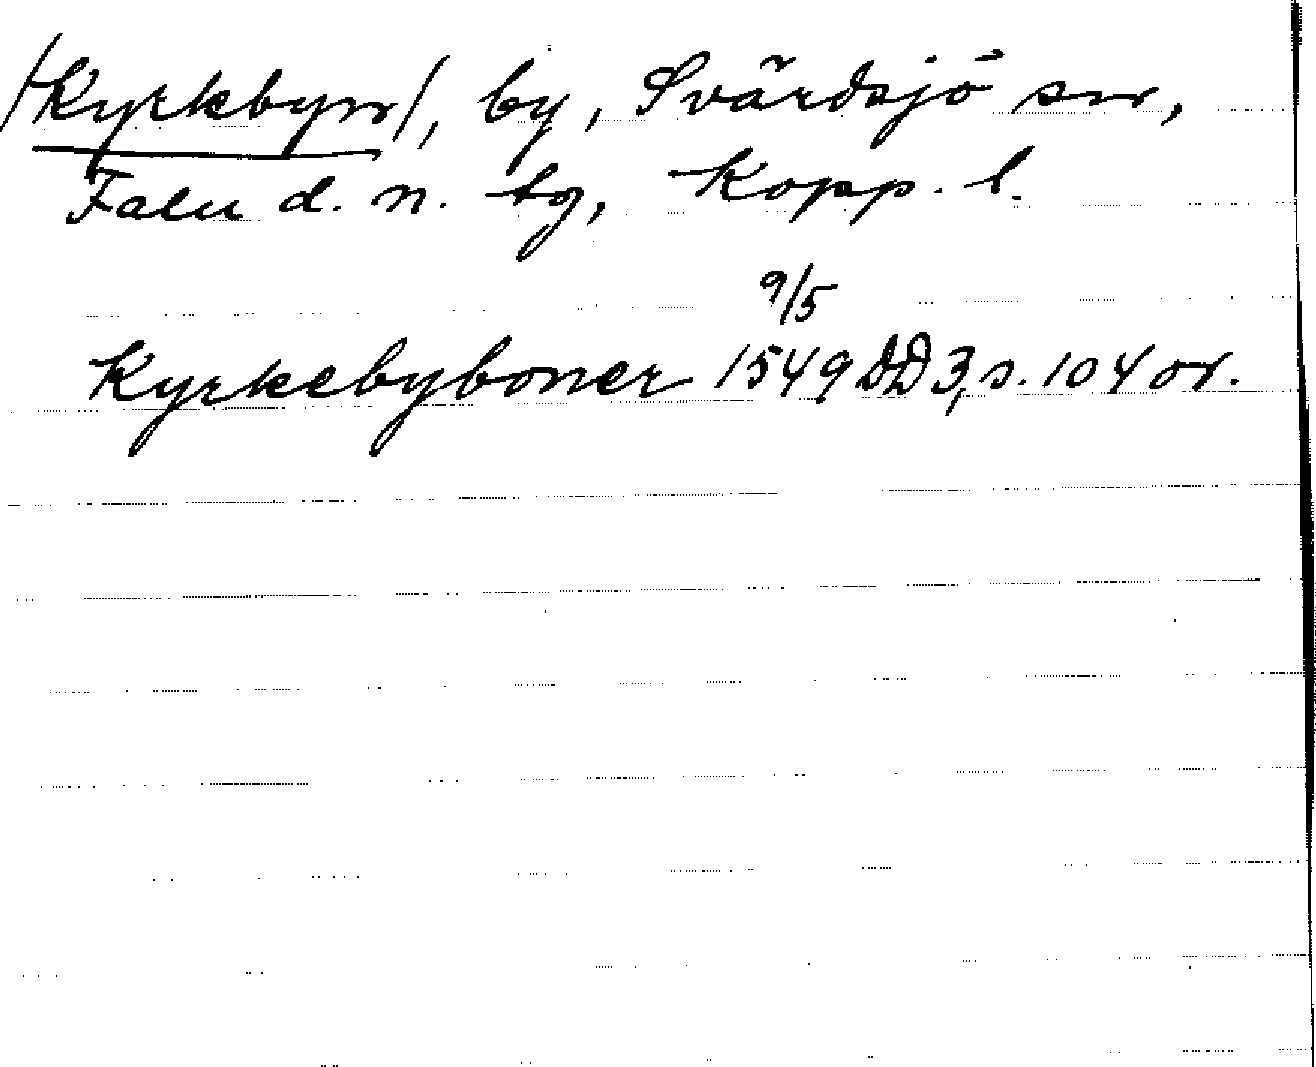 /Kyrkbyn/, by, Svärdsjö sn,
Falu d. n. tg, Kopp. l.
9/5
Kyrkebyboner 1549 DD 3, s. 104 or.